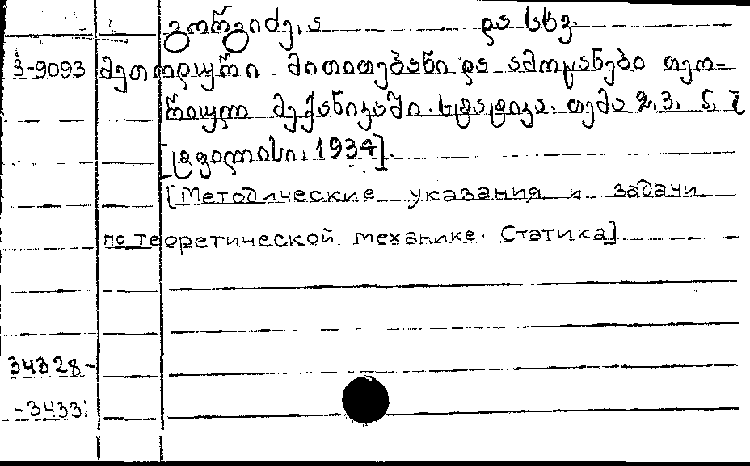 გორგიძე, ა და სხვ.
3-9093 მეთოდური მითითებანი და ამოცანები თეო-
რიულ მექანიკაში. სტატიკა. თემა 2, 3, 5, 7
[ტფილისი, 1934].
[Методические указания и задачи
по теоретической механике. Статика]
34328-
-3433